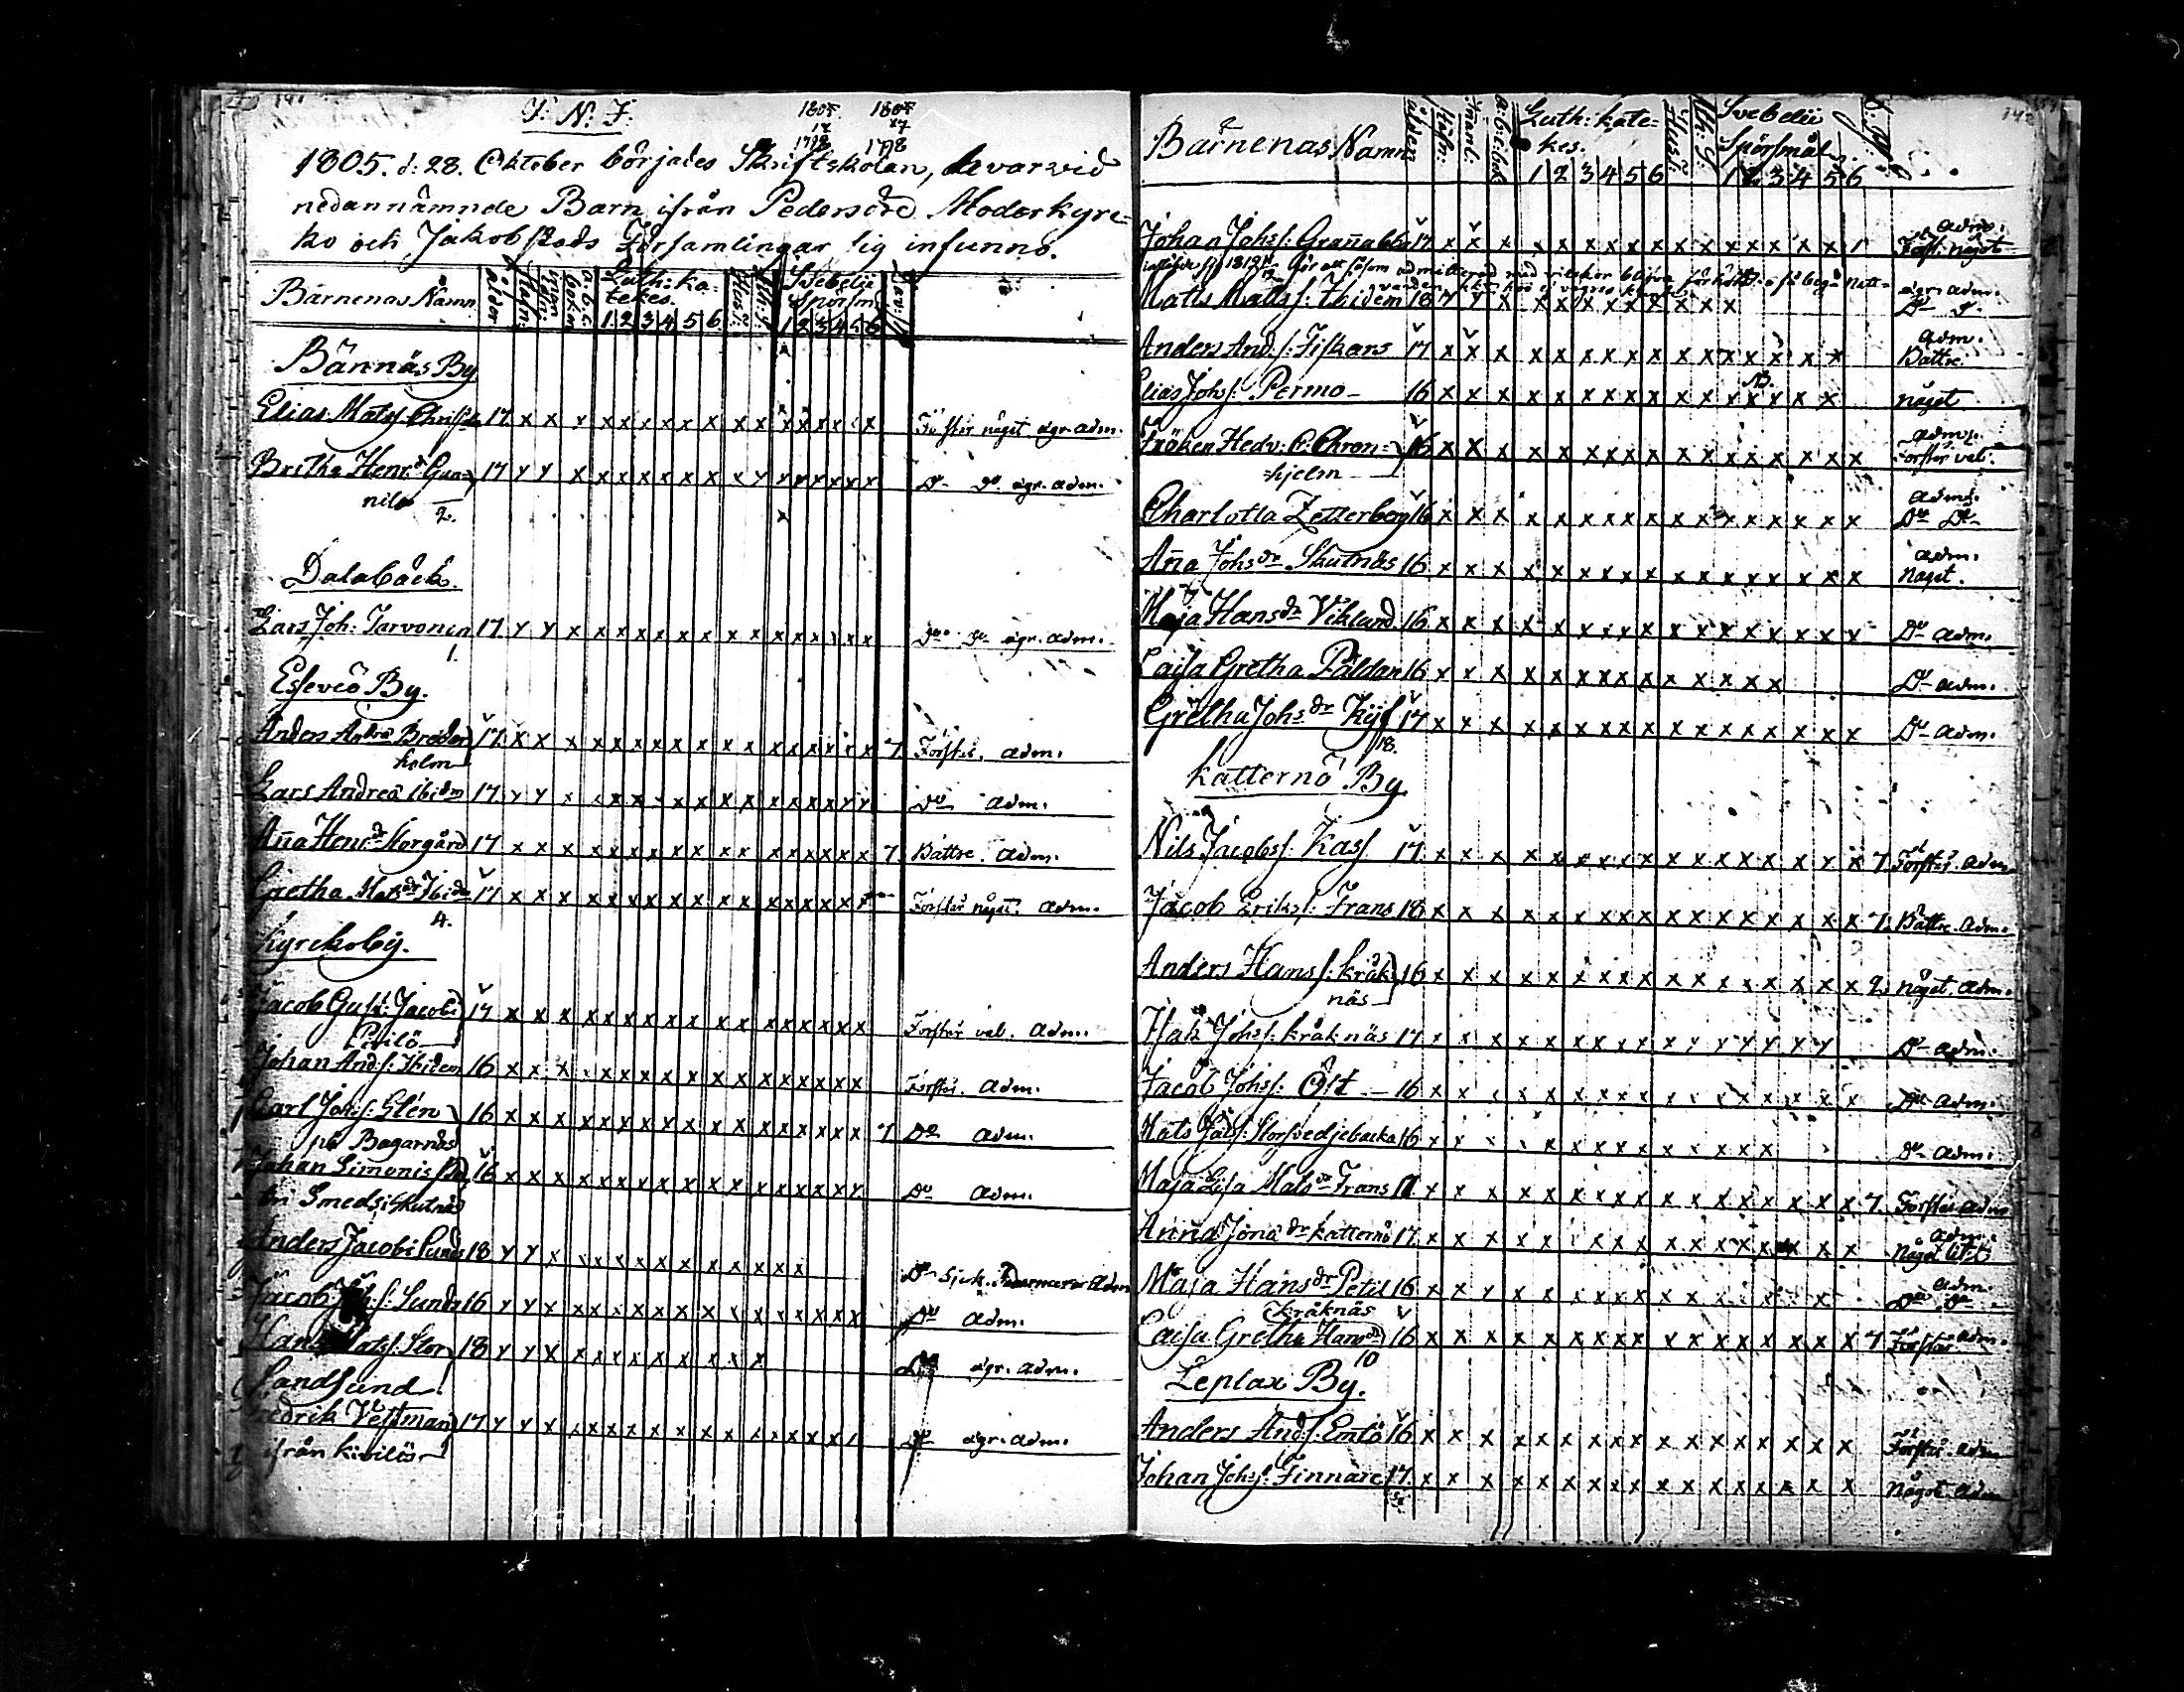 J: N: J:
1805 1805
17 17
1788 1788
1805. d: 28. Oktober börjades Skriftskolan, hvarvid
nedannämnde Barn ifrån Pedersöre Moderkyrc-
ko och Jakobstads Församlingar sig infunno.
Barnenas Namn ålder a.b.c. boken Luth: ka- Hust: Svebelii
tekes. Spörsm
1 2 3 4 5 6 1 2 3 4 5 6
Bännäs By
Elias Mats: 17 x x x x x x x x x x x x x x x x x Förstår något. ägr. adm.
Britha Henr: dr Gun- 17 x x x x x x x x x x x x x x x x x Do Do ägr. adm.
nils
2.
Dalabäck.
Lars Joh: Tarvonen 17 x x x x x x x x x x x x x x x x x Do Do ägr. adm.
1.
Esseviö By.
Anders Andreæ Breder 17 x x x x x x x x x x x x x x x x x 7. Förstår. adm.
holm
Lars Andreæ Ibidm 17 x x x x x x x x x x x x x x x x x Do adm.
Aña Henr: dr Storgård 17 x x x x x x x x x x x x x x x x x 7. Bättre. adm.
Gretha Mats dr Ibidm 17 x x x x x x x x x x x x x x x x x Förstår något. adm.
4.
Kyrckoby.
Jacob Gust: Jacobi 17 x x x x x x x x x x x x x x x x x Förstår väl. adm.
Johan And: s: Ibidem 16 x x x x x x x x x x x x x x x x x Förstår. adm.
Carl Johs: s: Glén 16 x x x x x x x x x x x x x x x x x 7 Do adm.
på Bagarnäs
Johan Simonis 16 x x x x x x x x x x x x x x x x x Do adm.
Smeds i Skutnäs
Anders Jacobi Sunds 18 x x x x x x x x x x x x x x Do sjuk. adm
Jacob s: Sunds 16 x x x x x x x x x x x x x x x x x Do adm.
Hans Mats: Stor 18 x x x x x x x x x x x x Do ägr. adm.
Sandsund
Fredrik Vestman 17 x x x x x x x x x x x x x x x x Do ägr. adm.
ifrån Kivilös
142
Barnenas Namn ålder a.b.c. bok Luth: kate- Hust: Svebelii
kes. Spörsmål
1 2 3 4 5 6 1 2 3 4 5 6
adm.
Johan Johs: s: Grañabba 17 x x x x x x x x x x x x x x x x x 1 Först. något
Matts Matts s: Ibidem 18 x x x x x x x x x x x x ägr. adm.
adm.
Anders And: s: Fiskars 17 x x x x x x x x x x x x x x x x Bättre.
NB.
Elias Johs: Permo 16 x x x x x x x x x x x x x x x x något
adm.
Fröken Hedv: C. Chron- 16 x x x x x x x x x x x x x x x x x Förstår väl.
hjelm
adm.
Charlotta Zetterberg 16 x x x x x x x x x x x x x x x x x Do Do
adm.
Aña Johs dr Skutnäs 16 x x x x x x x x x x x x x x x x x Något.
Maja Hans dr Viklund 16 x x x x x x x x x x x x x x x x x Do adm.
Cajsa Gretha Påldar 16 x x x x x x x x x x x x x x Do adm.
Gretha Johs dr 17 x x x x x x x x x x x x x x x x x Do adm.
18.
Katternö By.
Nils Jacobs: Kass 17 x x x x x x x x x x x x x x x x x 7 Förstår. adm
Jacob Eriks: Frans 18 x x x x x x x x x x x x x x x x x 7. Bättre. adm.
Anders Hans s: Kråk- 16 x x x x x x x x x x x x x x x x x 2. något. adm.
näs
Isak Johs: Kråknäs 17 x x x x x x x x x x x x x x x x Do adm.
Jacob Johs: Öst 16 x x x x x x x x x x x x x x x x x Do adm.
Mats Storsvedjebacka 16 x x x x x x x x x x x x x x Do adm.
Maja Lisa Mats dr Frans 17 x x x x x x x x x x x x x x x x x 7. Förstår adm
adm.
Anna Jona dr Katternö 17 x x x x x x x x x x x x x x x x x Något litet
adm.
Maja Hans dr Petil 16 x x x x x x x x x x x x x x x x Do Do
Kråknäs
Cajsa Gretha Hans dr 16 x x x x x x x x x x x x x x x x x 7 Förstår adm.
10
Leplax By.
Anders And: s: Emlö 16 x x x x x x x x x x x x x x x x x Förstår. adm
Johan Johs: Finnäre 17. x x x x x x x x x x x x x x x x x Något. adm